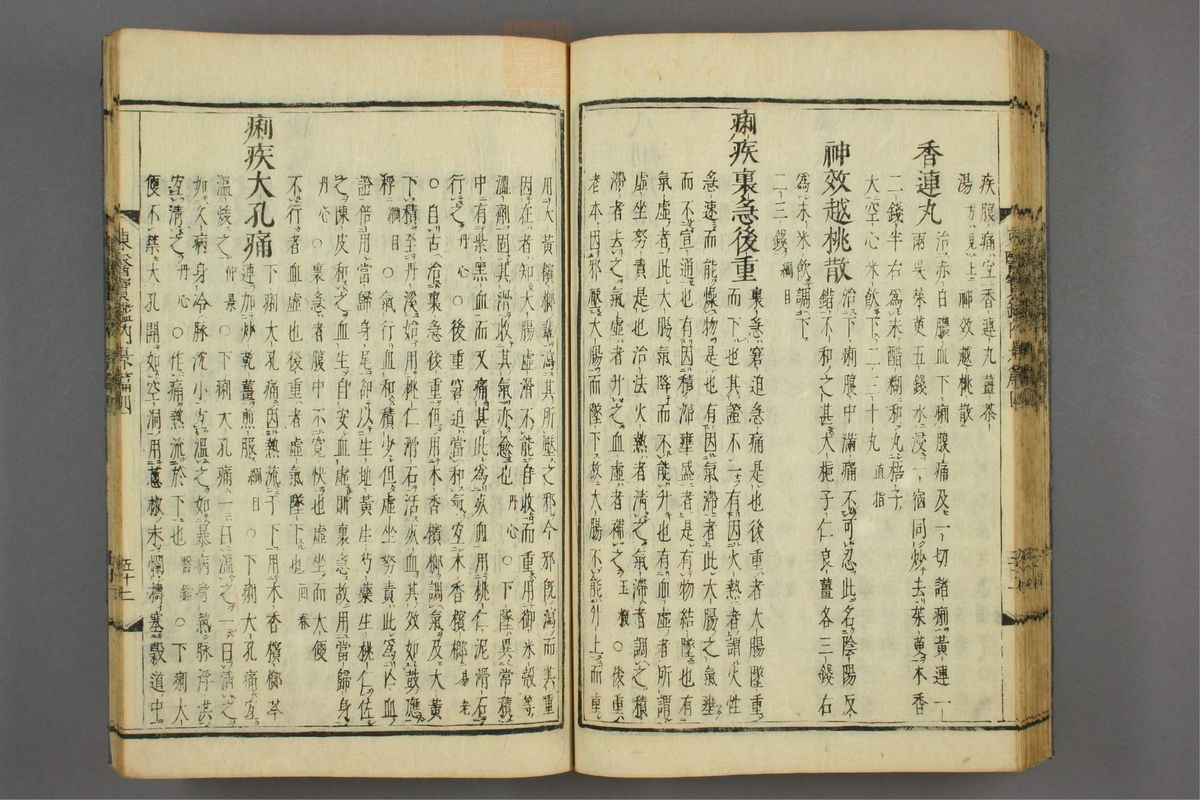 疾腹痛宜香連丸薑茶
湯方見上神效越桃散
香連丸治赤白膿血下痢腹痛及一切諸痢黃連一
兩吳茱萸五錢水浸一宿同炒去茱萸木香
二錢半右爲末醋糊和丸梧子
大空心米飮下二三十丸直指
神效越桃散治下痢腹中滿痛不可忍此名陰陽反
錯不和之甚大梔子仁良薑各三錢右
爲末米飮調下
二三錢綱目
痢疾裏急後重裏急窘迫急痛是也後重者大腸墜重
而下也其證不一有因火熱者謂火性
急速而能燥物是也有因氣滯者此大腸之氣壅
而不宣通也有因積滯壅盛者是有物結墜也有
氣虛者此大腸氣降而不能升也有血虛者所謂
虛坐努責是也治法火熱者淸之氣滯者調之積
滯者去之氣虛者升之血虛者補之玉機○後重
者本因邪壓大腸而墜下故大腸不能升上而重
用大黃檳榔輩瀉其所壓之邪今邪旣瀉而其重
因在者知大腸虛滑不能自收而重用御米殼等
澁劑固其滑收其氣亦愈也丹心○下墜異常積
中有紫黑血而又痛甚此爲死血用桃仁泥滑石
行之丹心○後重窘迫當和氣宜木香檳榔易老
○自古治裏急後重但用木香檳榔調氣及大黃
下積至丹溪始用桃仁滑石活死血其效如鼓應
桴綱目○氣行血和積少但虛坐努責此爲亡血
證倍用當歸身尾却以生地黃生芍藥生桃仁佐
之陳皮和之血生自安血虛則裏急故用當歸身
丹心○裏急者腹中不寬快也虛坐而大便
不行者血虛也後重者虛氣墜下也回春
痢疾大孔痛下痢大孔痛因熱流于下用木香檳榔芩
連加炒乾薑煎服綱目○下痢大孔痛宜
溫煖之仲景○下痢大孔痛一曰溫之一曰淸之
如久病身冷脉沈小宜溫之如暴病身熱脉浮洪
宜淸之丹心○作痛熱流於下也醫鑑○下痢大
便不禁大孔開如空洞用葱椒末爛搗塞穀道中
東醫寶鑑內景篇四
五十二